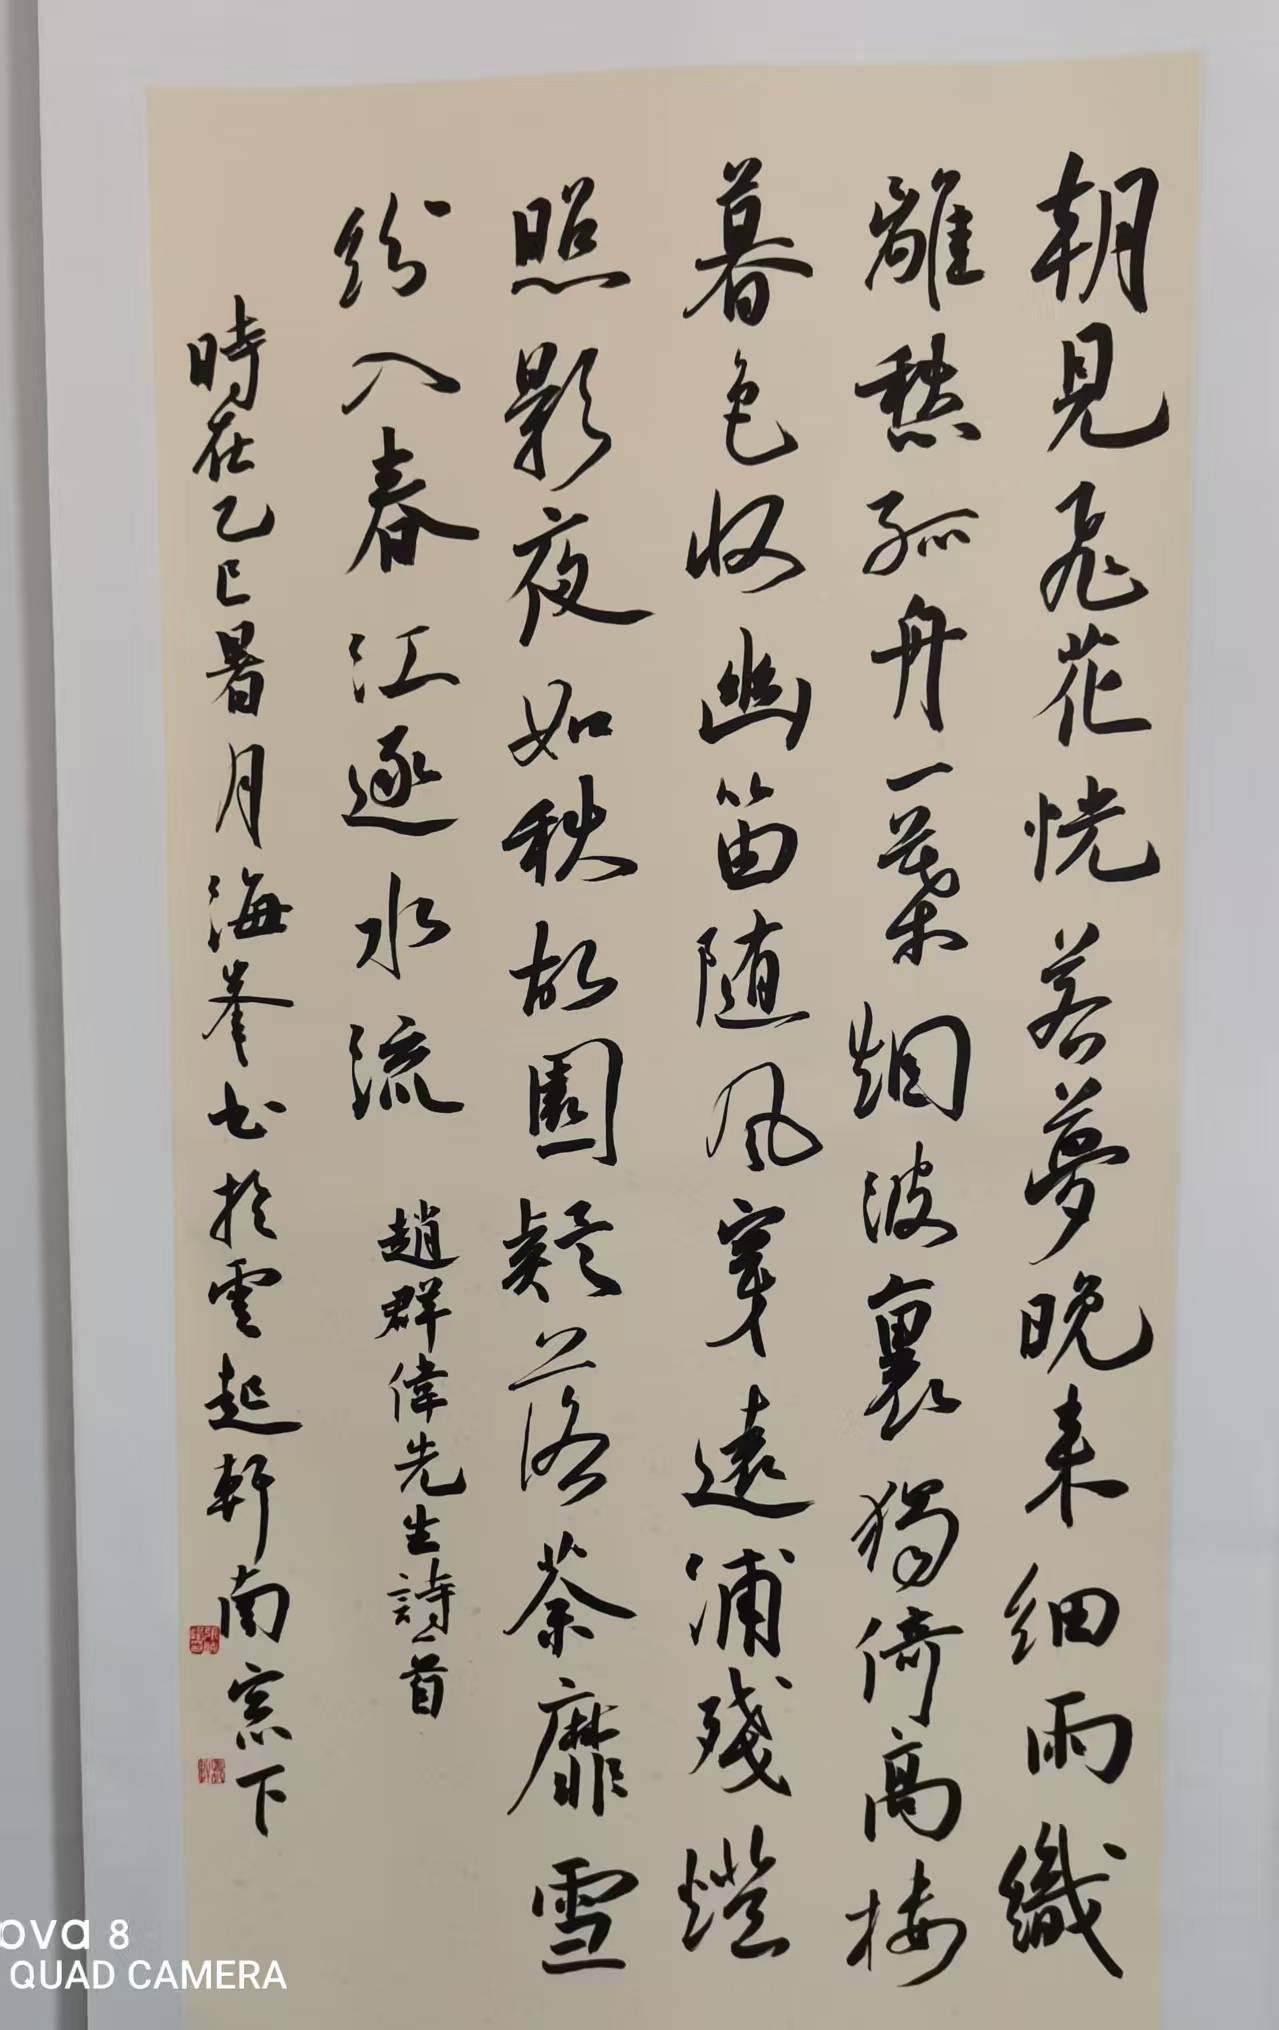 朝見飛花恍若夢晚来细雨織
離愁孤舟一葉烟波裏獨倚高楼
暮色收幽笛随風穿遠浦殘燈
照影夜如秋故園疑落荼靡雪
紛入春江逐水流
趙群偉先生詩一首
時在乙巳暑月海峯书於雲起軒南窓下
ova 8
QUAD CAMERA